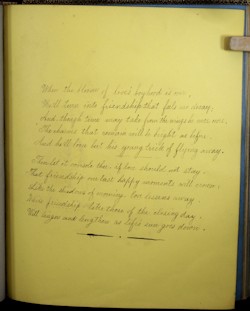 When the bloom of love's boyhood is o'er,
He'll turn into friendship that feels no decay,
And, though time may take from the wings he once wore,
The charms that remain will be bright as before,
And he'll lose but his young trick of flying away.
Should it console thee, if love should not stay,
That friendship our last happy moments will crown.
Like the shadows of morning, love lessens away,
While friendship, like those at the closing day,
Will linger and lengthen as life's sun goes down.